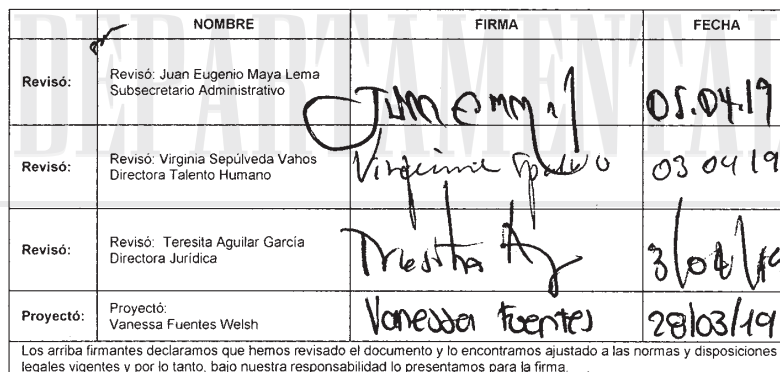 DEPARTAMENTAL
NOMBRE FIRMA FECHA
Revisó: Revisó: Juan Eugenio Maya Lema
Subsecretario Administrativo 05.04.19
Revisó: Revisó: Virginia Sepúlveda Vahos
Directora Talento Humano Virginia 03 04 19
Revisó: Revisó: Teresita Aguilar García
Directora Jurídica 3/04/19
Proyectó: Proyectó:
Vanessa Fuentes Welsh Vanessa Fuentes 28/03/19
Los arriba firmantes declaramos que hemos revisado el documento y lo encontramos ajustado a las normas y disposiciones
legales vigentes y por lo tanto, bajo nuestra responsabilidad lo presentamos para la firma.